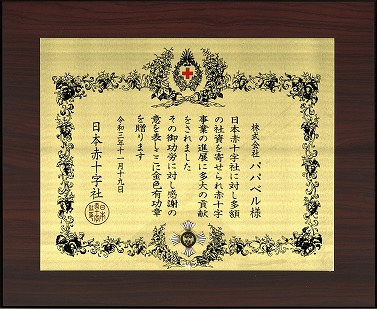 株式会社 パパベル様
日本赤十字社に対し多額
の社資を寄せられ赤十字
事業の進展に多大の貢献
をされました
その御功労に対し感謝の
意を表しここに金色有功章
を贈ります
令和三年十一月十九日
日本赤十字社